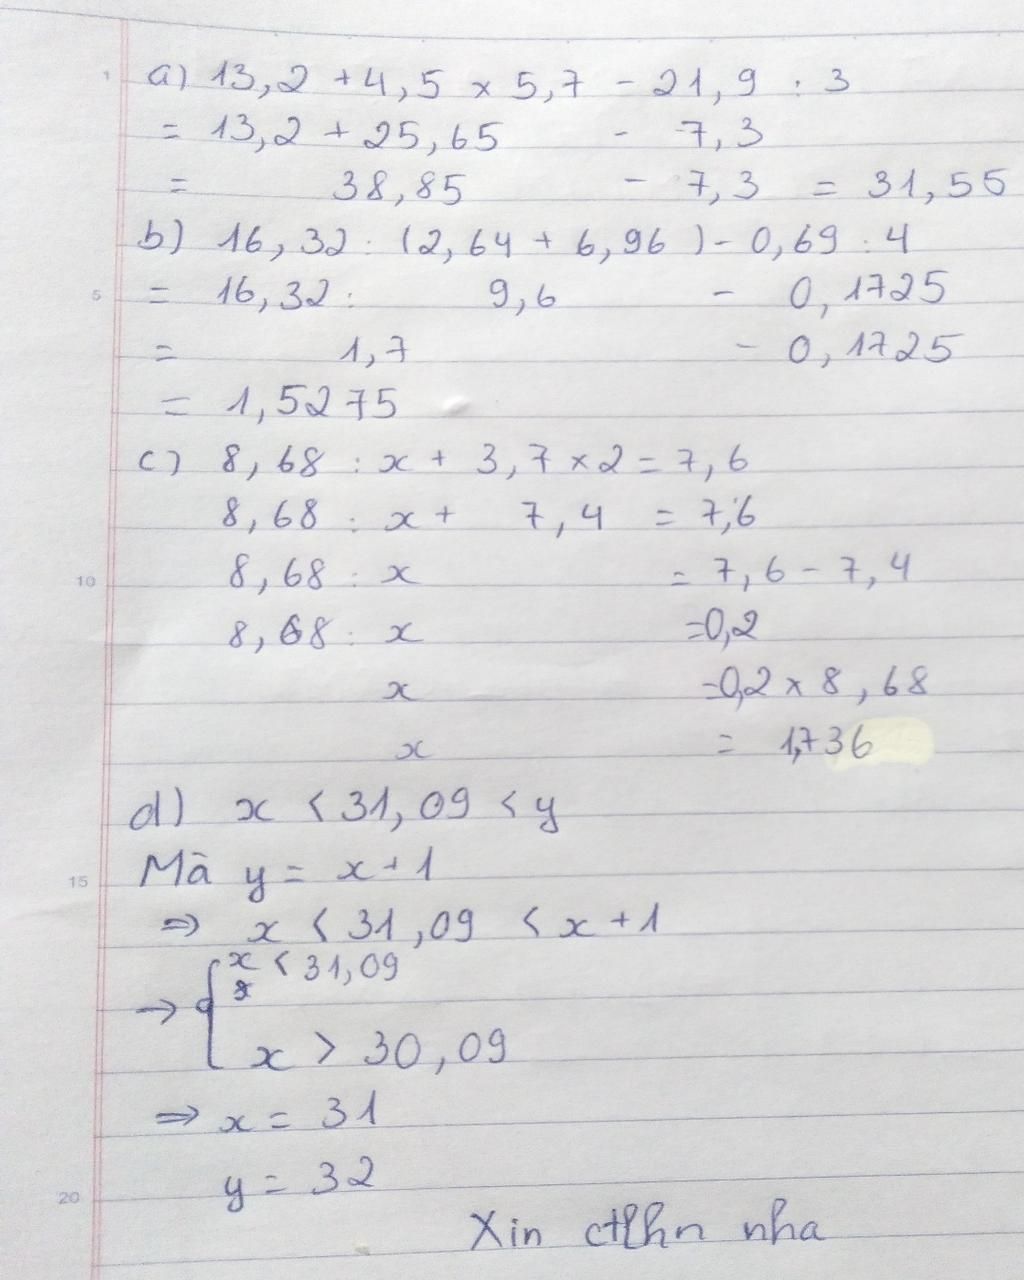 a) 13,2 + 4,5 x 5,7 - 21,9 : 3
= 13,2 + 25,65 - 7,3
= 38,85 - 7,3 = 31,55
b) 16,32 : (2,64 + 6,96) - 0,69 : 4
5 = 16,32 : 9,6 - 0,1725
= 1,7 - 0,1725
= 1,5275
c) 8,68 : x + 3,7 x 2 = 7,6
8,68 : x + 7,4 = 7,6
10 8,68 : x = 7,6 - 7,4
8,68 : x = 0,2
x = 0,2 x 8,68
x = 1,736
d) x < 31,09 < y
15 Mà y = x + 1
=> x < 31,09 < x + 1
x < 31,09
-> {
x > 30,09
=> x = 31
20 y = 32
Xin ctlhn nha